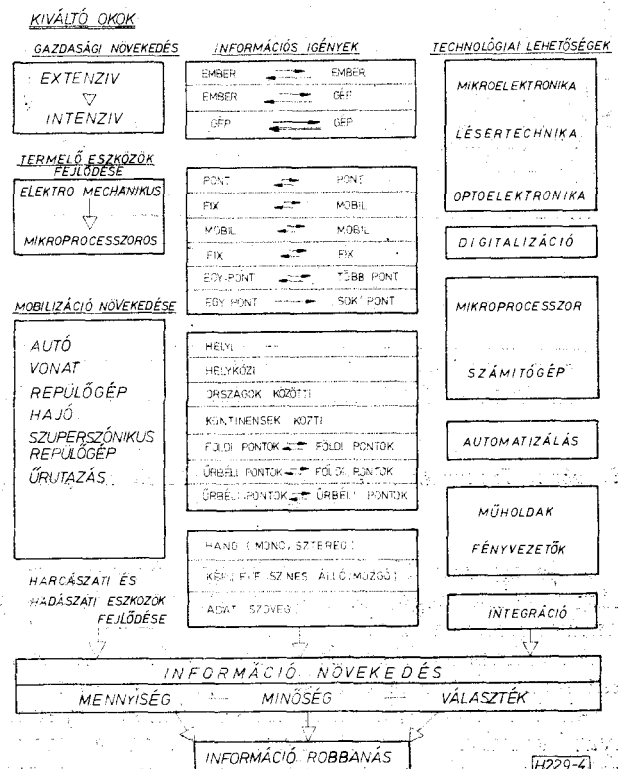 KIVÁLTÓ OKOK
GAZDASÁGI NÖVEKEDÉS
EXTENZIV
INTENZIV
TERMELŐ ESZKÖZÖK
FEJLŐDÉSE
ELEKTRO MECHANIKUS
MIKROPROCESSZOROS
MOBILIZÁCIÓ NÖVEKEDÉSE
AUTÓ
VONAT
REPÜLŐGÉP
HAJÓ
SZUPERSZÓNIKUS
REPÜLŐGÉP
ŰRUTAZÁS
HARCÁSZATI ÉS
HADÁSZATI ESZKÖZÖK
FEJLŐDÉSE
INFORMÁCIÓS IGÉNYEK
EMBER EMBER
EMBER GÉP
GÉP GÉP
PONT PONT
FIX MOBIL
MOBIL MOBIL
FIX FIX
EGY PONT TÖBB PONT
EGY PONT SOK PONT
HELYI
HELYKÖZI
ORSZÁGOK KÖZÖTTI
KONTINENSEK KÖZTI
FÖLDI PONTOK FÖLDI PONTOK
ŰRBÉLI PONTOK FÖLDI PONTOK
ŰRBÉLI PONTOK ŰRBÉLI PONTOK
HANG (MONO, SZTEREO)
SZINES ÁLLÓ, MOZGÓ)
ADAT SZÖVEG
TECHNOLÓGIAI LEHETŐSÉGEK
MIKROELEKTRONIKA
LÉSERTECHNIKA
OPTOELEKTRONIKA
DIGITALIZÁCIÓ
MIKROPROCESSZOR
SZÁMITÓGÉP
AUTOMATIZÁLÁS
MŰHOLDAK
FÉNYVEZETŐK
INTEGRÁCIÓ
INFORMÁCIÓ NÖVEKEDÉS
MENNYISÉG MINŐSÉG VÁLASZTÉK
INFORMÁCIÓ ROBBANÁS
H229-4